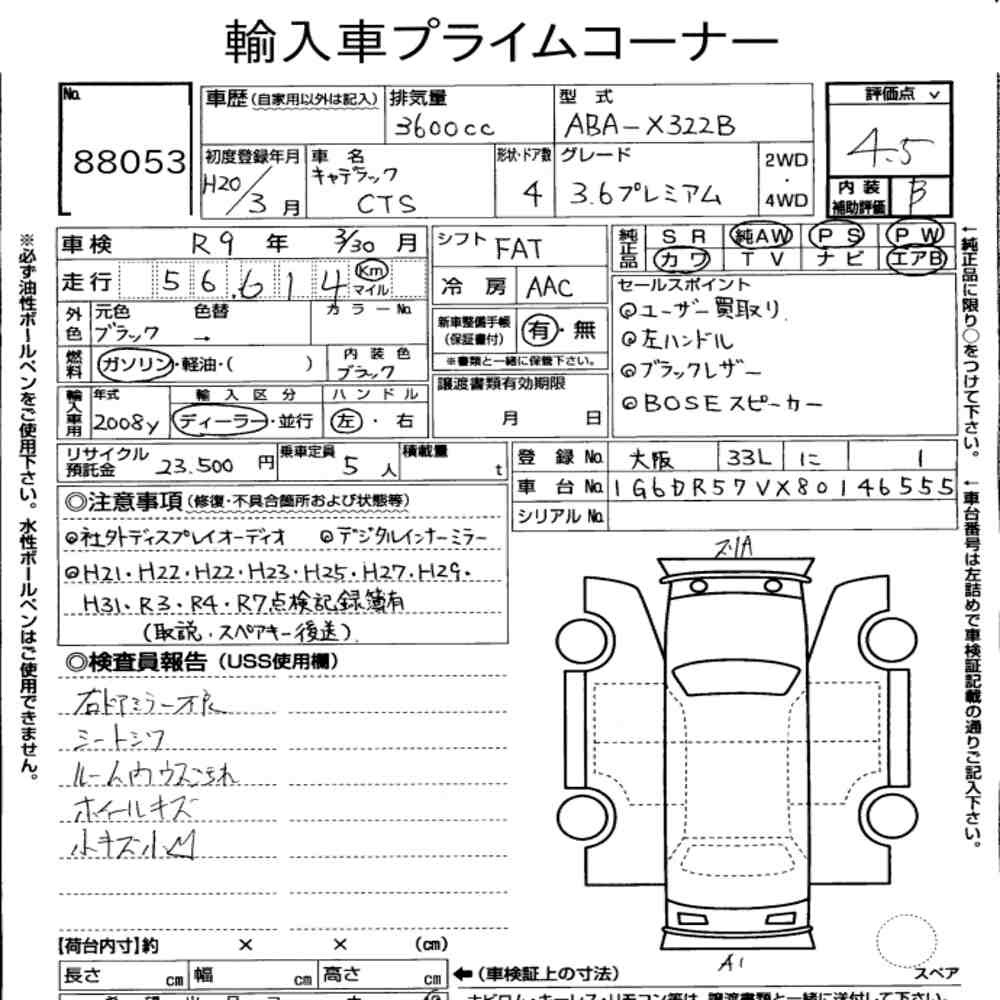 輸入車プライムコーナー
No. 88053
車歴(自家用以外は記入) 排気量 3600cc 型式 ABA-X322B 評価点 4.5
初度登録年月 H20/3月 車名 キャデラック CTS 形状・ドア数 4 グレード 3.6プレミアム 2WD・4WD 内装補助評価 B
車検 R9年 3/30月 シフト FAT 純正品 SR 純AW PS PW
カワ TV ナビ エアB
走行 56,614 Km マイル 冷房 AAC
セールスポイント
◎ユーザー買取り
◎左ハンドル
◎ブラックレザー
◎BOSEスピーカー
外色 元色 ブラック 色替 → カラーNo.
新車整備手帳(保証書付) 有・無
※書類と一緒に保管下さい。
燃料 ガソリン・軽油・( ) 内装色 ブラック
譲渡書類有効期限 月 日
輸入車用 年式 2008y 輸入区分 ディーラー・並行 ハンドル 左・右
リサイクル預託金 23.500円 乗車定員 5人 積載量 t
登録No. 大阪 33L に 1
車台No. 1G6DR57VX80146555
シリアルNo.
◎注意事項(修復・不具合箇所および状態等)
◎社外ディスプレイオーディオ ◎デジタルインナーミラー
◎H21・H22・H22・H23・H25・H27・H29・
H31・R3・R4・R7点検記録簿有
(取説・スペアキー後送)
◎検査員報告(USS使用欄)
右ドアミラー不良
シートシワ
ルーム内ウスこられ
ホイールキズ
小キズ小凹
A1
スペア
【荷台内寸】約 × × (cm)
長さ cm 幅 cm 高さ cm ←(車検証上の寸法)
※必ず油性ボールペンをご使用下さい。水性ボールペンはご使用できません。
←純正品に限り○をつけて下さい。
←車台番号は左詰めで車検証記載の通りご記入下さい。